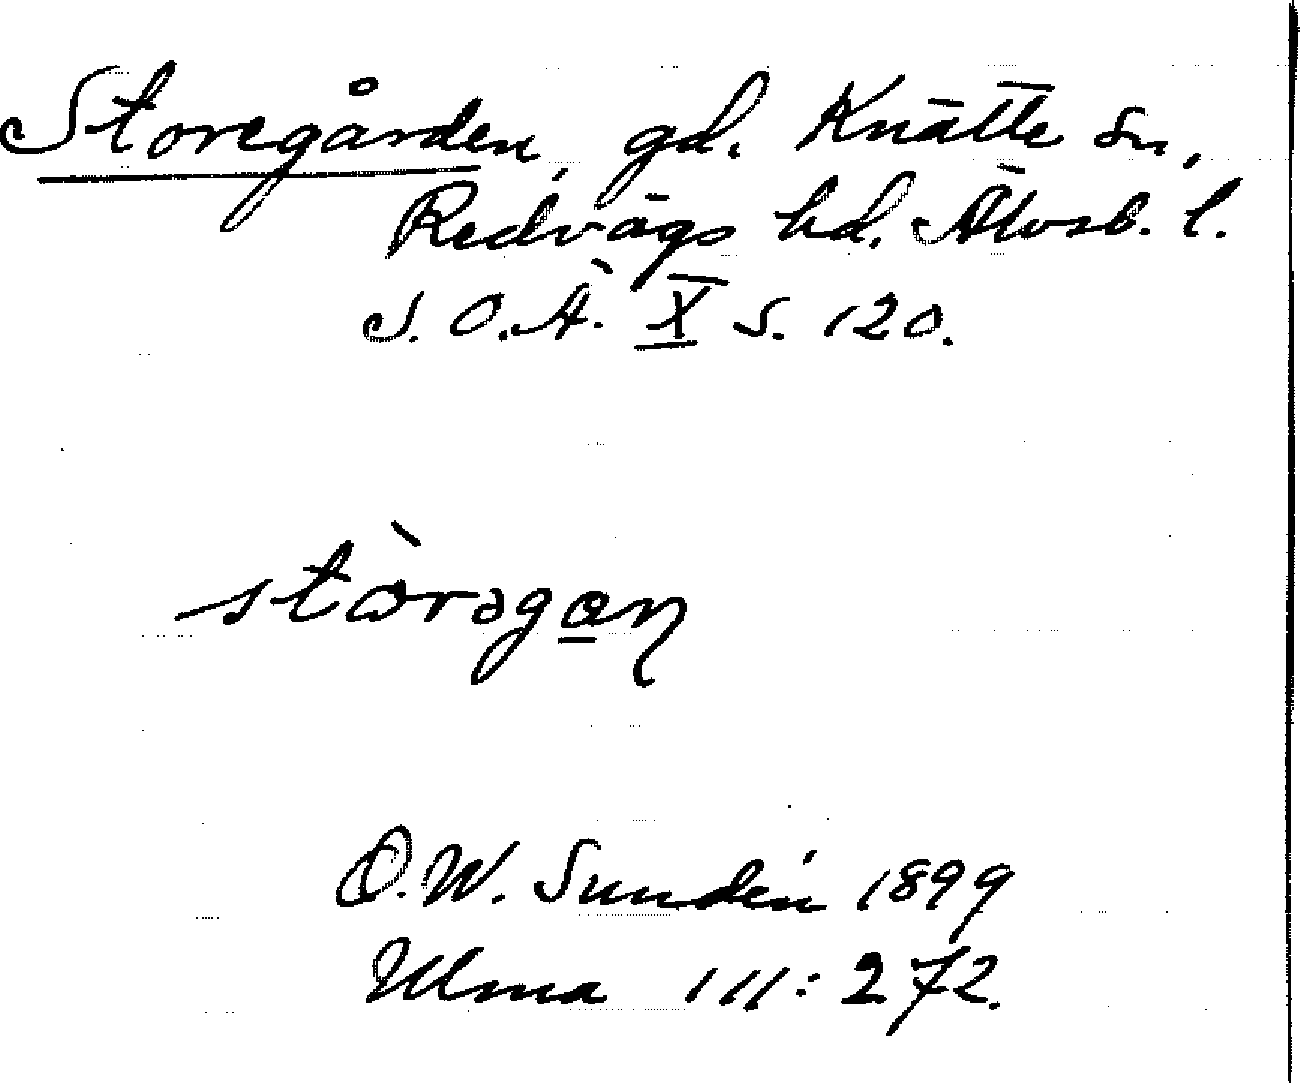 Storegården, gd. Knätte sn,
Redvägs hd. Älvsb. l.
S. O. Ä. X s. 120.
stòrəgan
D. W. Sundén 1899
Ulma 111:272.